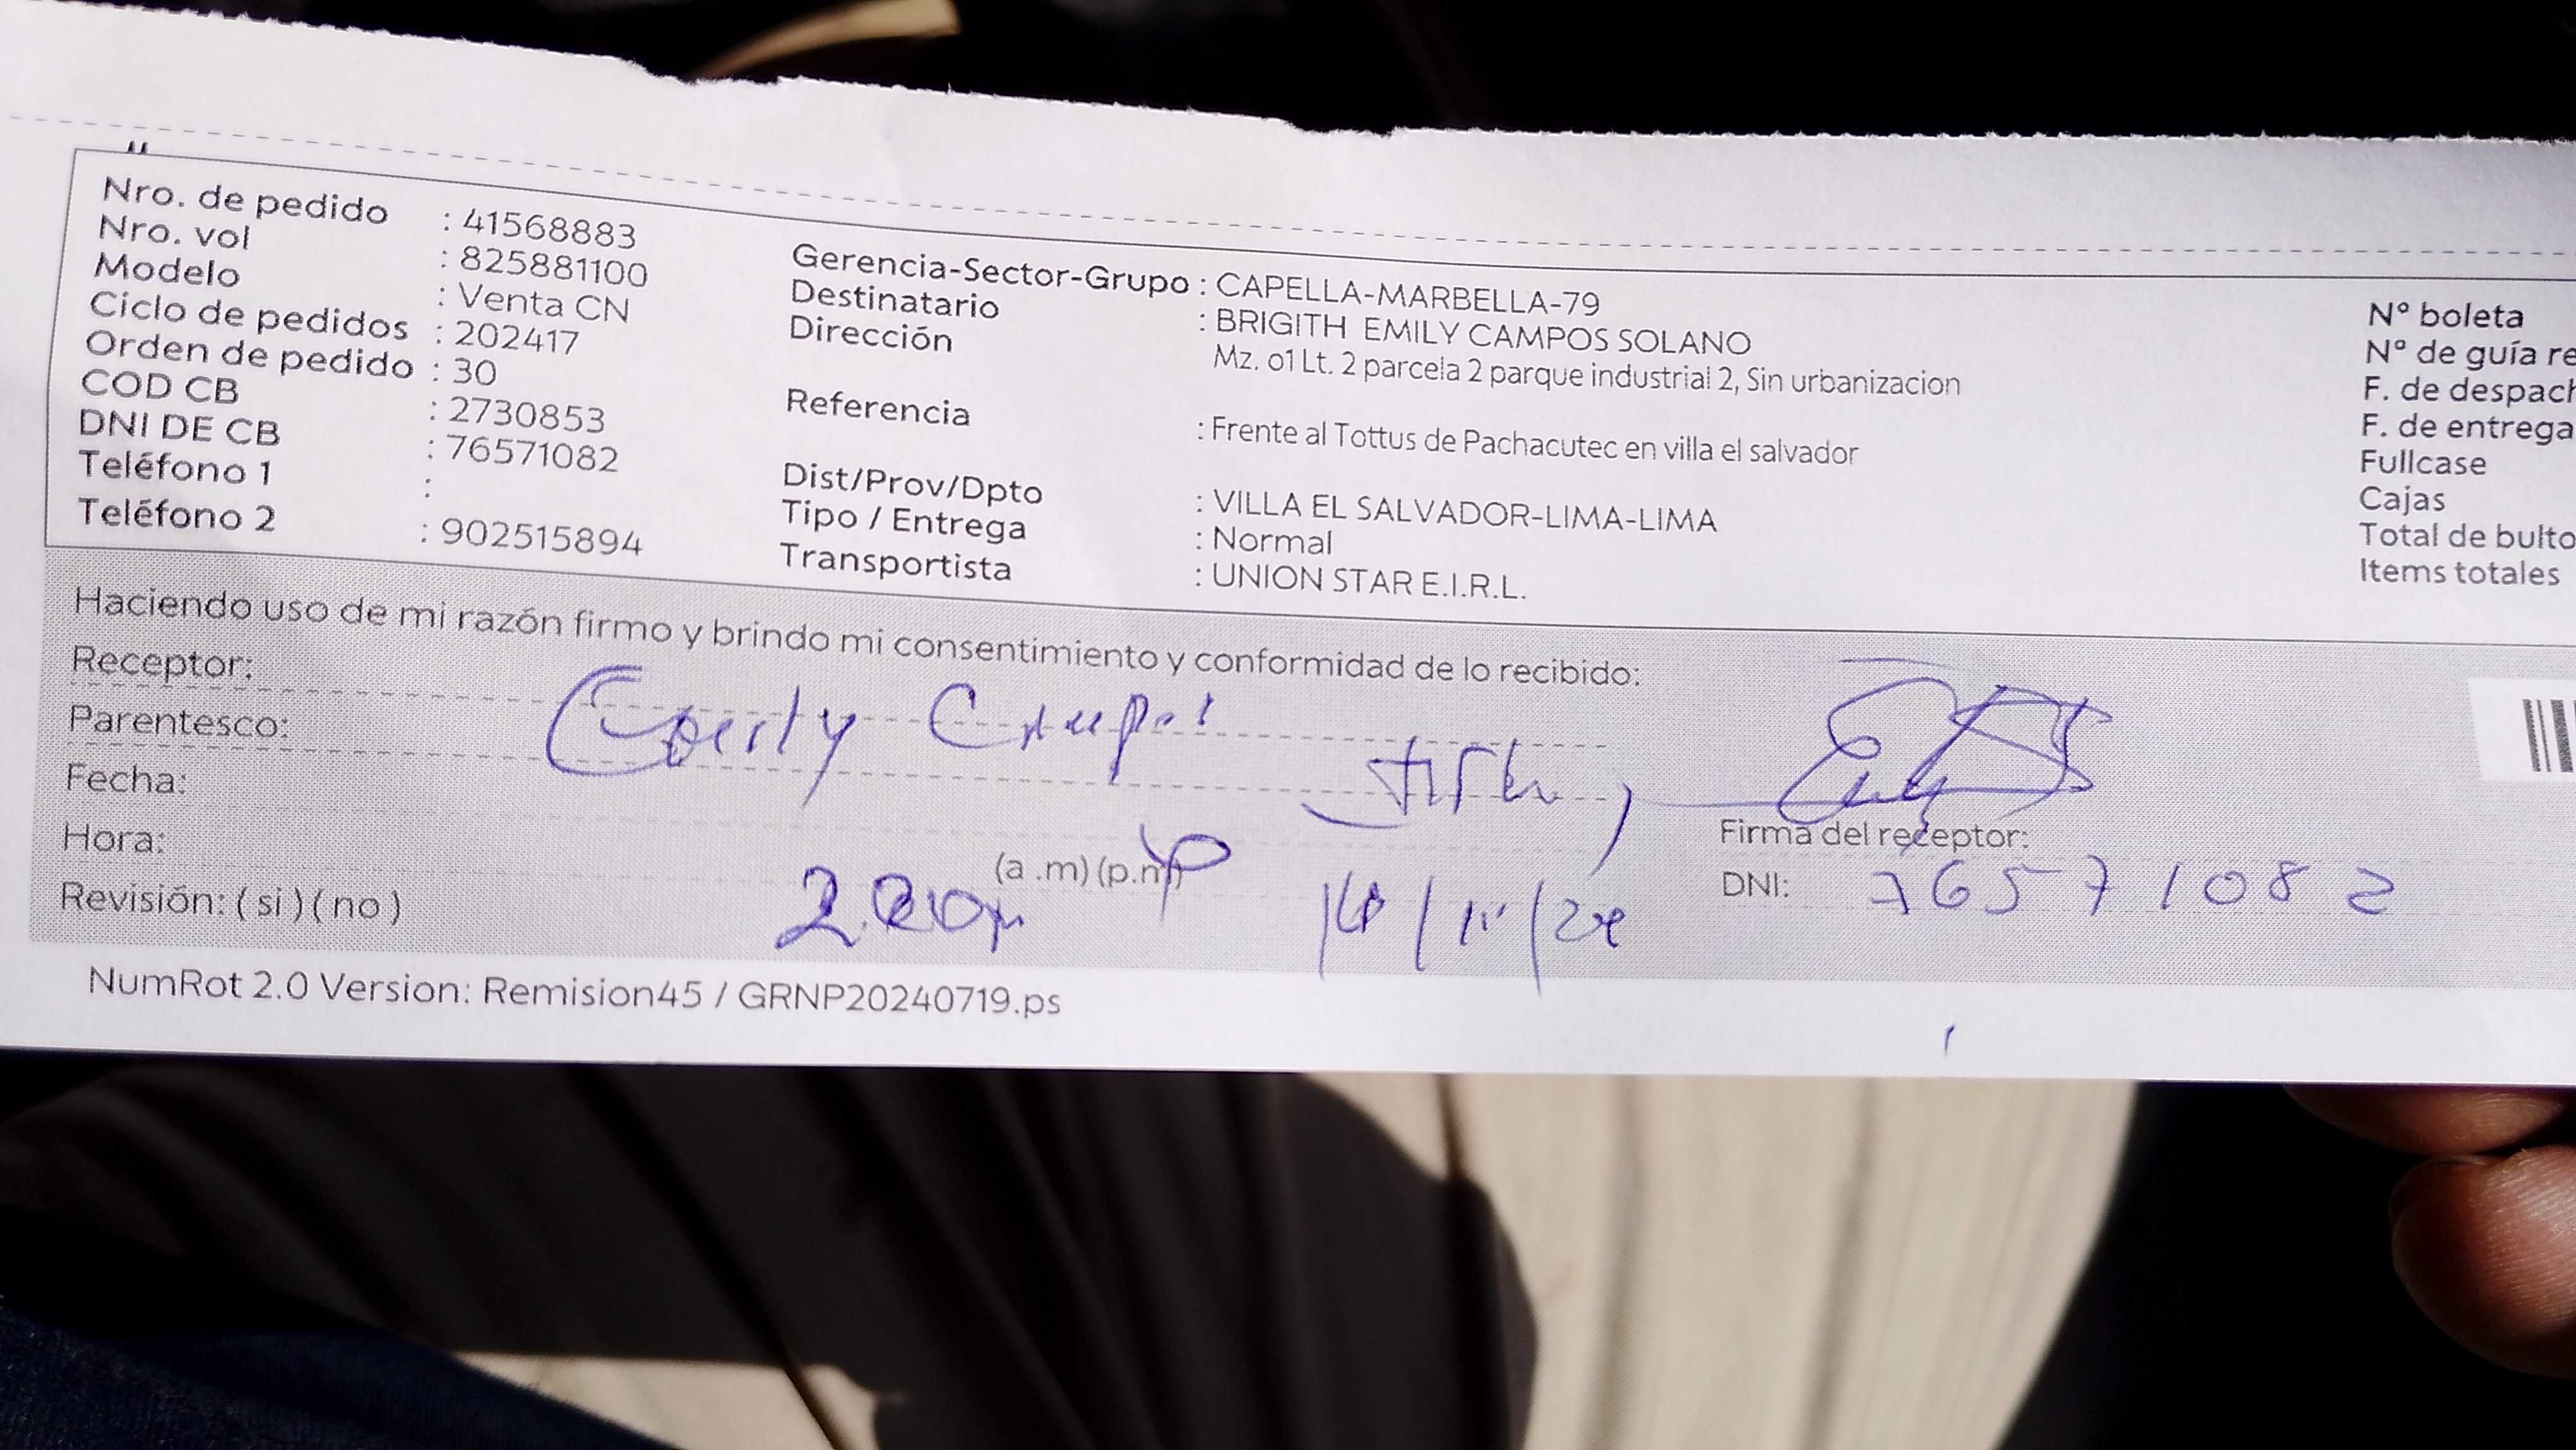 Nro. de pedido : 41568883
Nro. vol : 825881100
Modelo : Venta CN
Ciclo de pedidos : 202417
Orden de pedido : 30
COD CB : 2730853
DNI DE CB : 76571082
Teléfono 1 :
Teléfono 2 : 902515894
Gerencia-Sector-Grupo : CAPELLA-MARBELLA-79
Destinatario : BRIGITH EMILY CAMPOS SOLANO
Dirección Mz. o1 Lt. 2 parcela 2 parque industrial 2, Sin urbanizacion
Referencia : Frente al Tottus de Pachacutec en villa el salvador
Dist/Prov/Dpto : VILLA EL SALVADOR-LIMA-LIMA
Tipo / Entrega : Normal
Transportista : UNION STAR E.I.R.L.
N° boleta
N° de guía re
F. de despach
F. de entrega
Fullcase
Cajas
Total de bulto
Items totales
Haciendo uso de mi razón firmo y brindo mi consentimiento y conformidad de lo recibido:
Receptor:
Parentesco:
Fecha:
Hora: (a .m) (p.m)
Revisión: ( si ) ( no )
Firma del receptor:
DNI: 76571082
NumRot 2.0 Version: Remision45 / GRNP20240719.ps